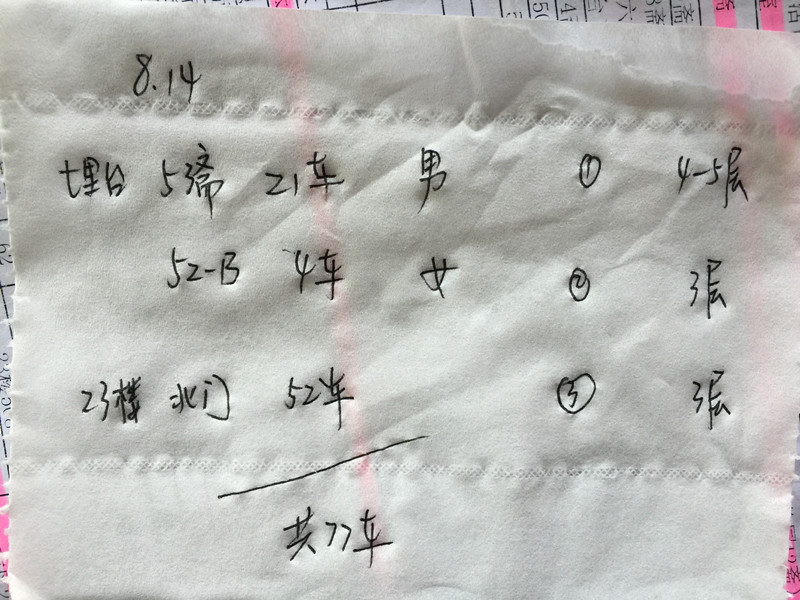 8.14
埋台 5斋 21车 男 ① 4-5层
52-B 4车 女 ② 3层
23楼 北门 52车 ③ 3层
共77车